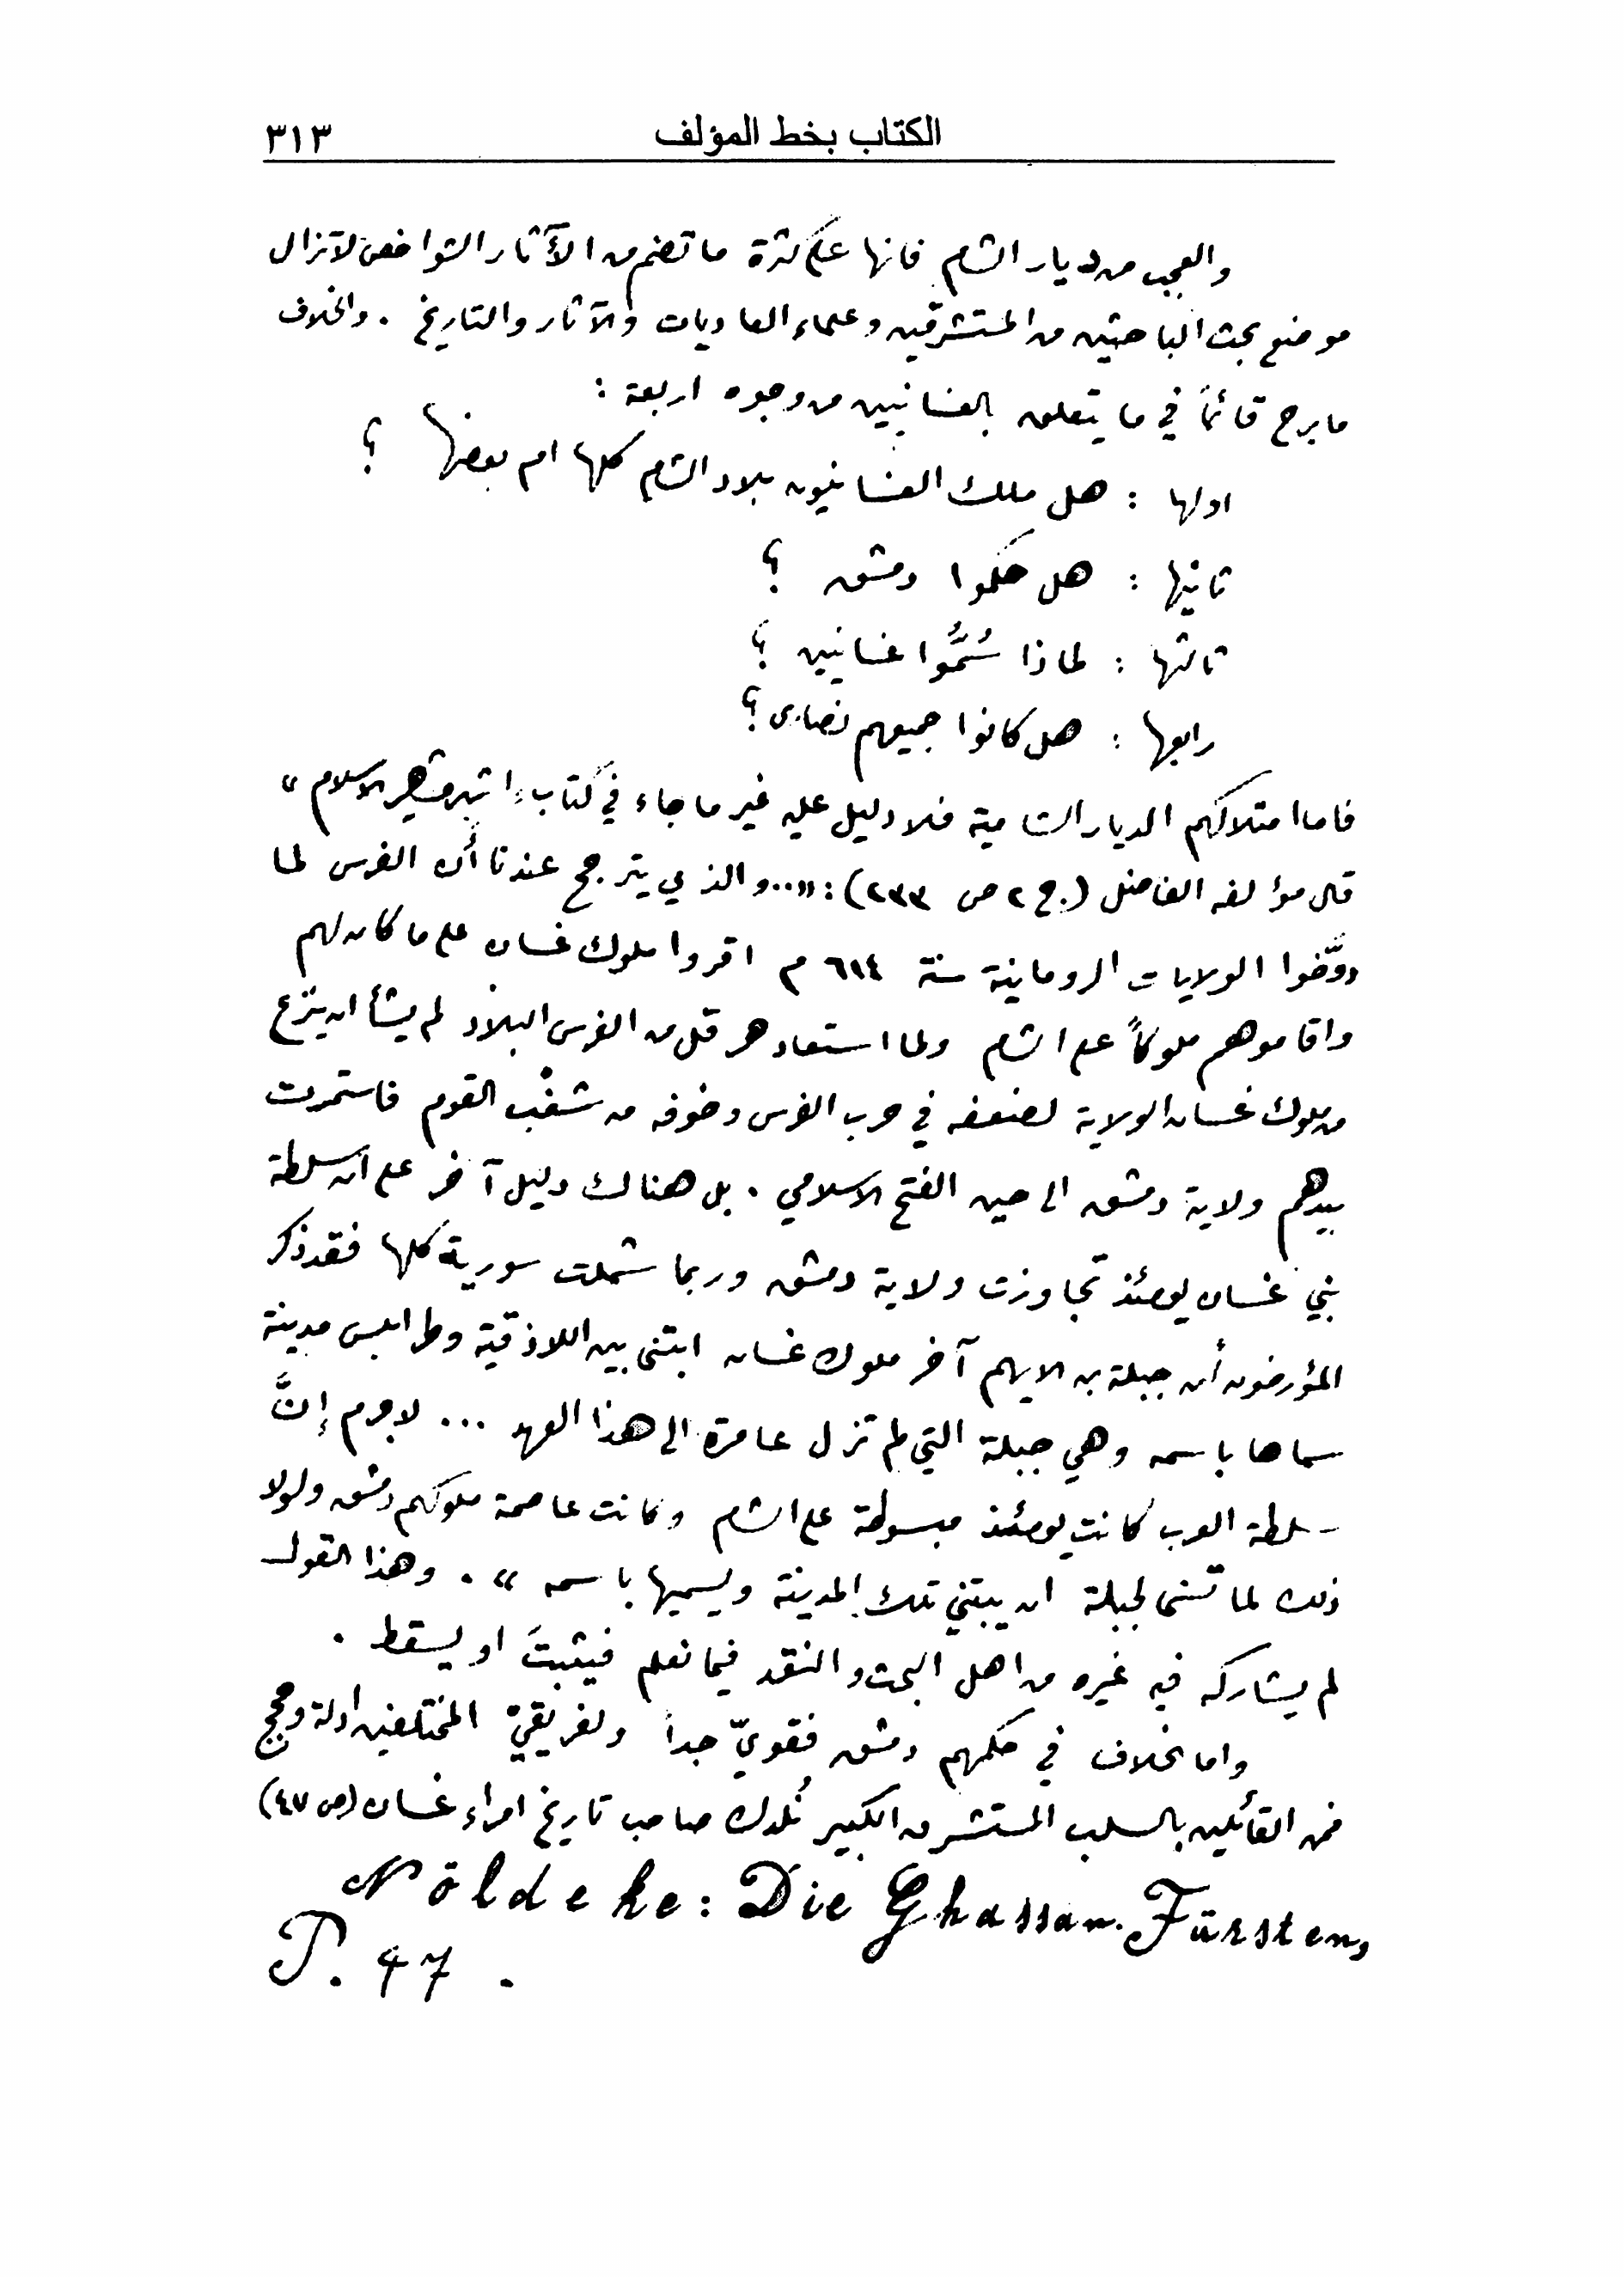 الكتاب بخط المؤلف ٣١٣
والعجب من ديار الشام فانها على كثرة ما تضم من الآثار الشواخص لا تزال
موضع بحث الباحثين من المستشرقين وعلماء العاديات والآثار والتاريخ . والخلاف
ما برح قائماً في ما يتعلق بالغسانيين من وجوه اربعة :
اولها : هل ملك الغسانيون بلاد الشام كلها ام بعضها ؟
ثانيها : هل حكموا دمشق ؟
ثالثها : لماذا سُمُّوا غسانيين ؟
رابعها : هل كانوا جميعهم نصارى ؟
فاما امتلاكهم الديار الشامية فلا دليل عليه غير ما جاء في كتاب « اشهر مشاهير الاسلام »
قال مؤلفه الفاضل (ج ٢ ص ٢٣٣) : «... والذي يترجح عندنا أن الفرس لما
دوَّخوا الولايات الرومانية سنة ٦١٤ م اقروا ملوك غسان على ما كان لهم
واقاموهم ملوكاً على الشام ولما استعاد هرقل من الفرس البلاد لم يشأ ان ينزع
من ملوك غسان الولاية لضعفه في حرب الفرس وخوفه من شغْب القوم فاستمرت
بيدهم ولاية دمشق الى حين الفتح الاسلامي . بل هنالك دليل آخر على ان سلطة
بني غسان يومئذ تجاوزت ولاية دمشق وربما شملت سورية كلها فقد ذكر
المؤرخون أن جبلة بن الايهم آخر ملوك غسان ابتنى بين اللاذقية وطرابلس مدينة
سماها باسمه وهي جبلة التي لم تزل عامرة الى هذا العهد ... لا جرم إنَّ
سلطة العرب كانت يومئذ مبسوطة على الشام وكانت عاصمة ملوكهم دمشق ولولا
ذلك لما تسنى لجبلة ان يبتني تلك المدينة ويسميها باسمه » . وهذا القول
لم يشاركه فيه غيره من اهل البحث والنقد فيما نعلم فيثبتَ او يسقط .
واما الخلاف في حكمهم دمشق فقويّ جداً ولفريقيْ المختلفين ادلة وحجج
فمن القائلين بالسلب المستشرق الكبير نُلدك صاحب تاريخ امراء غسان (ص ٤٧)
Nöldeke : Die Ghassan. Fürsten,
P. 47 .